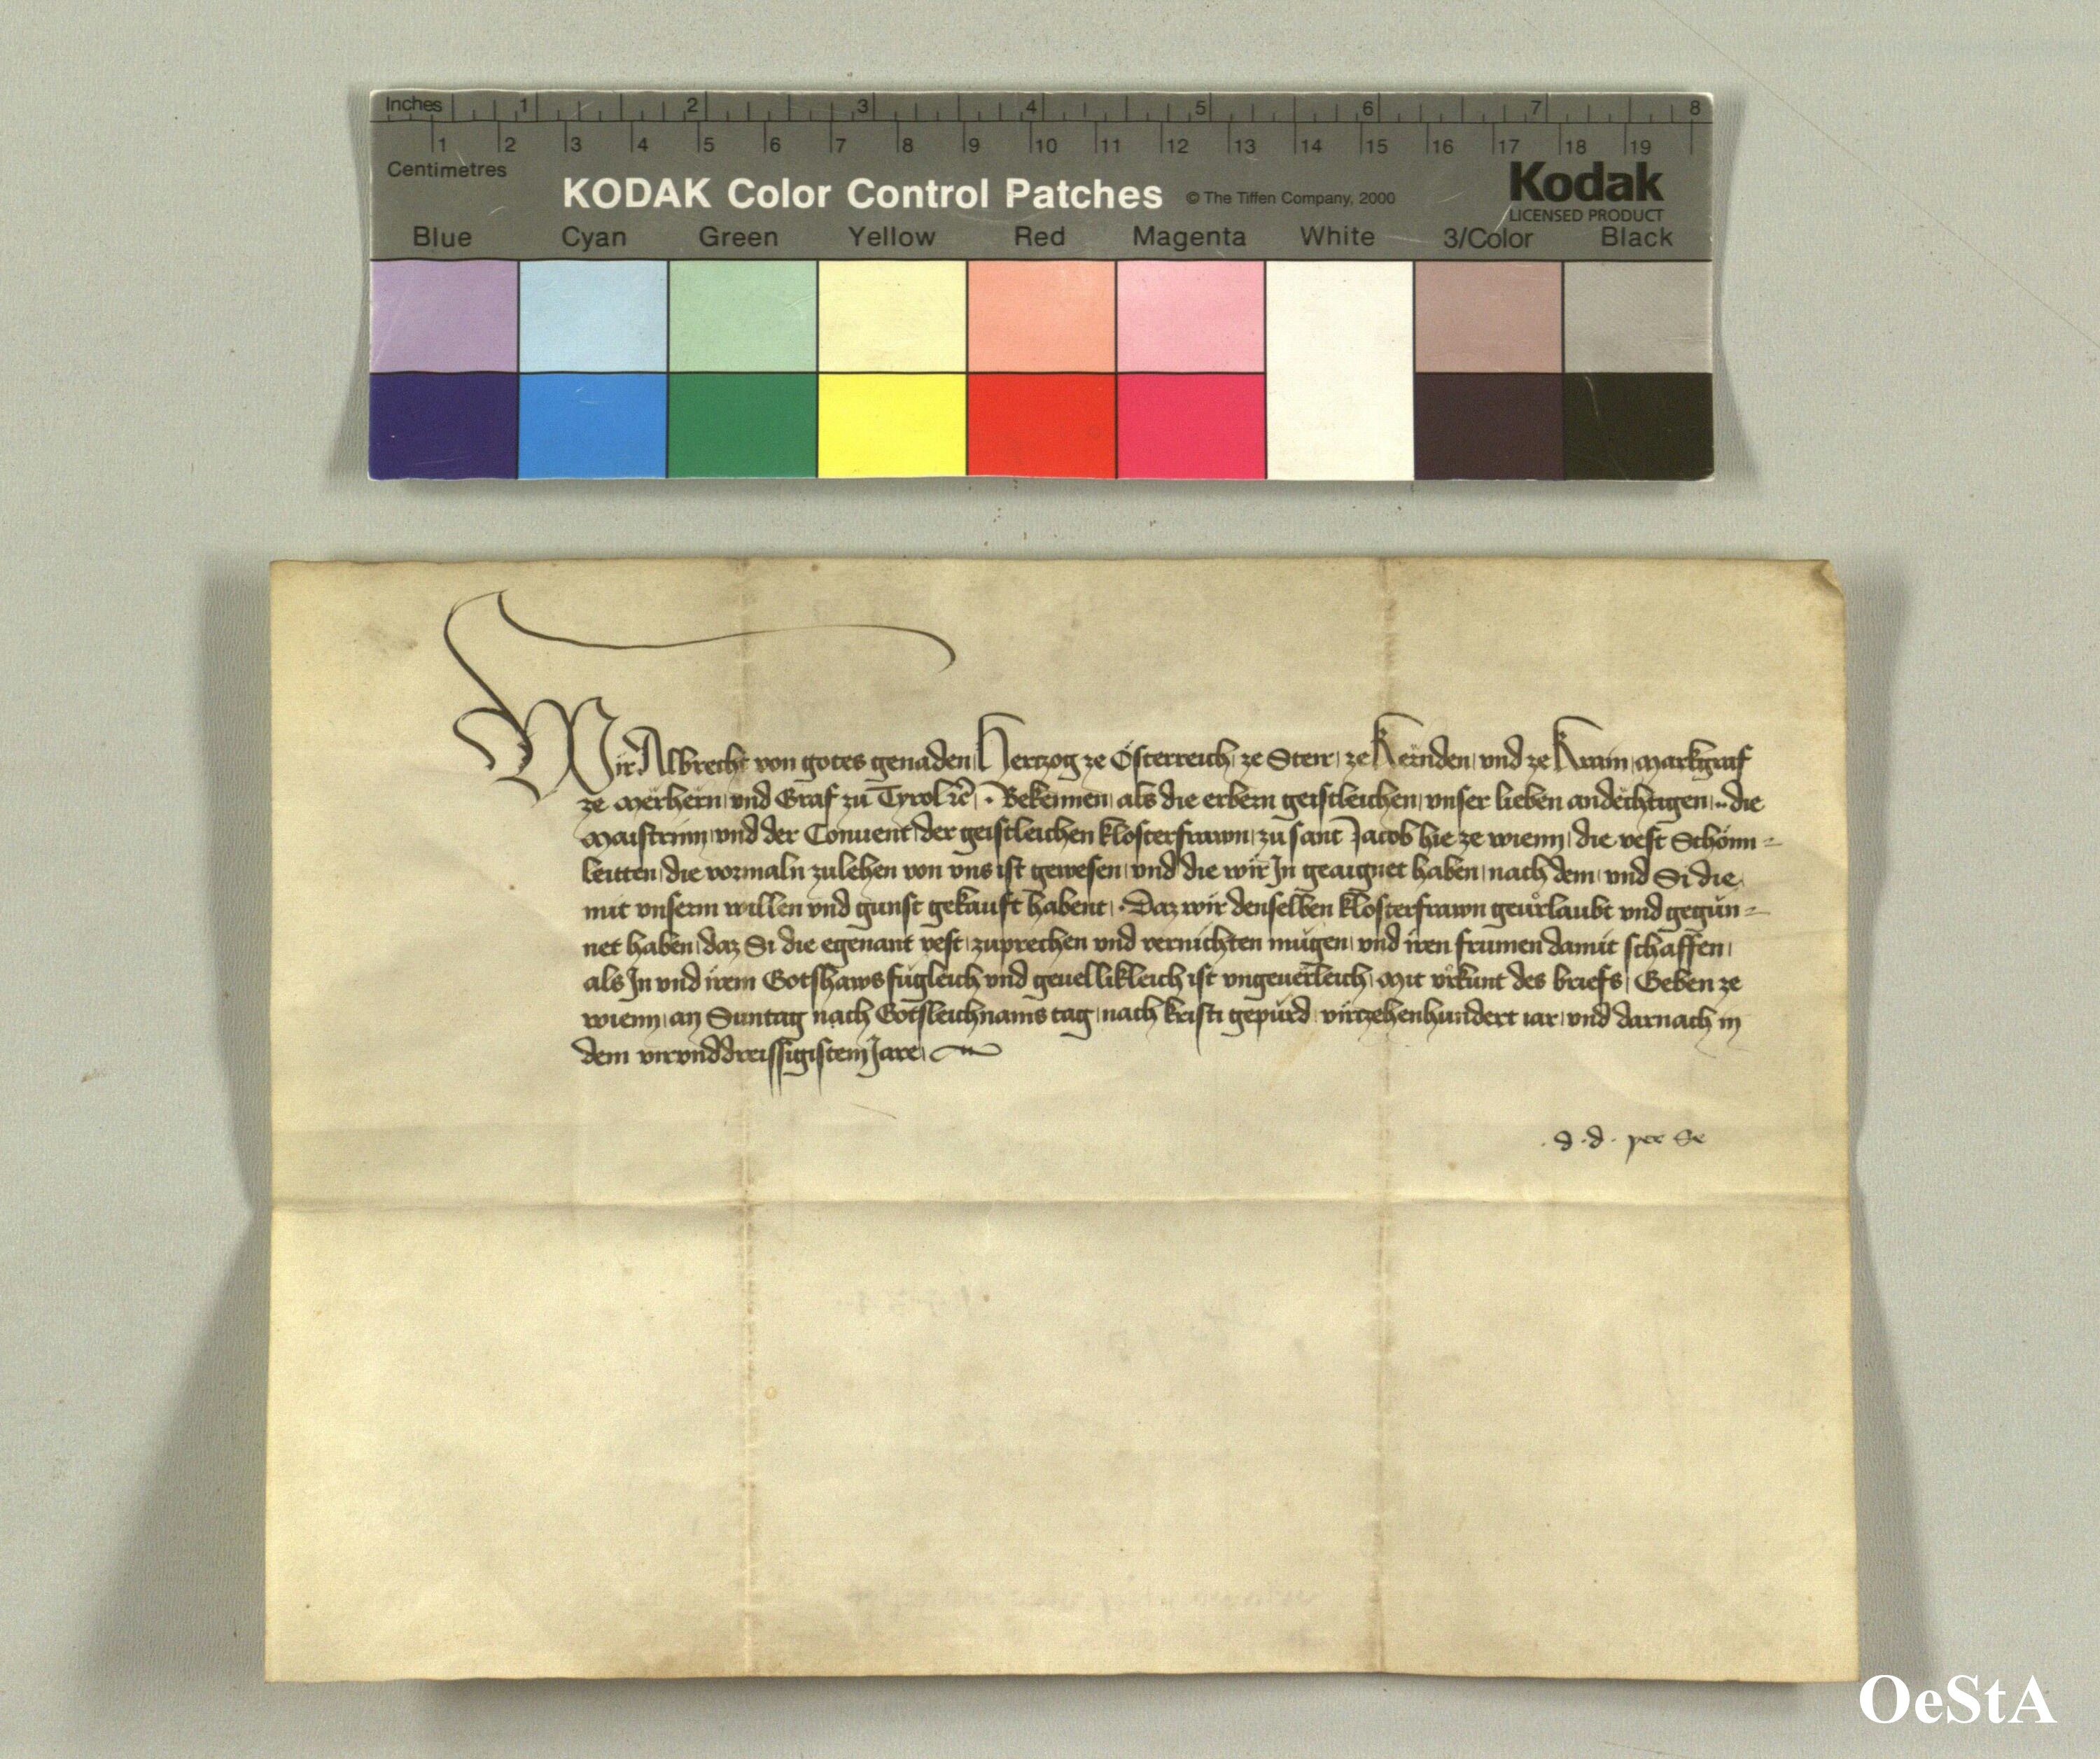 Inches 1 2 3 4 5 6 7 8
1 2 3 4 5 6 7 8 9 10 11 12 13 14 15 16 17 18 19
Centimetres
KODAK Color Control Patches © The Tiffen Company, 2000 Kodak
LICENSED PRODUCT
Blue Cyan Green Yellow Red Magenta White 3/Color Black
Wir Albrecht von gotes genaden Hertzog ze Österreich, ze Steir, ze Kërnden, vnd ze Krain, Markgraf
ze Mërhern, vnd Graf zu Tyrol etc̃. Bekennen, als die erbern geistleichen, vnser lieben andëchtigen, .. die
Maistrinn, vnd der Conuent der geistleichen klosterfrawn, zu sant Jacob hie ze wienn, die vest Schönn=
leitten, die vormaln zulehen von vns ist gewesen, vnd die wir In geaignet haben, nach dem, vnd Si die,
mit vnserm willen vnd gunst gekauft habent, Daz wir denselben klosterfrawn geurlaubt vnd gegün=
net haben, daz Si die egenant vest, zuprechen vnd vernichten mügen, vnd iren frumen damit schaffen,
als In vnd irem Gotshaws fügleich vnd geuellikleich ist vngeuerleich, Mit vrkunt des briefs, Geben ze
wienn, an Suntag nach Gotsleichnams tag, nach kristi gepürd virtzehenhundert iar, vnd darnach in
dem virvnddreissigistem Jare,
. d. d. per Se
OeStA